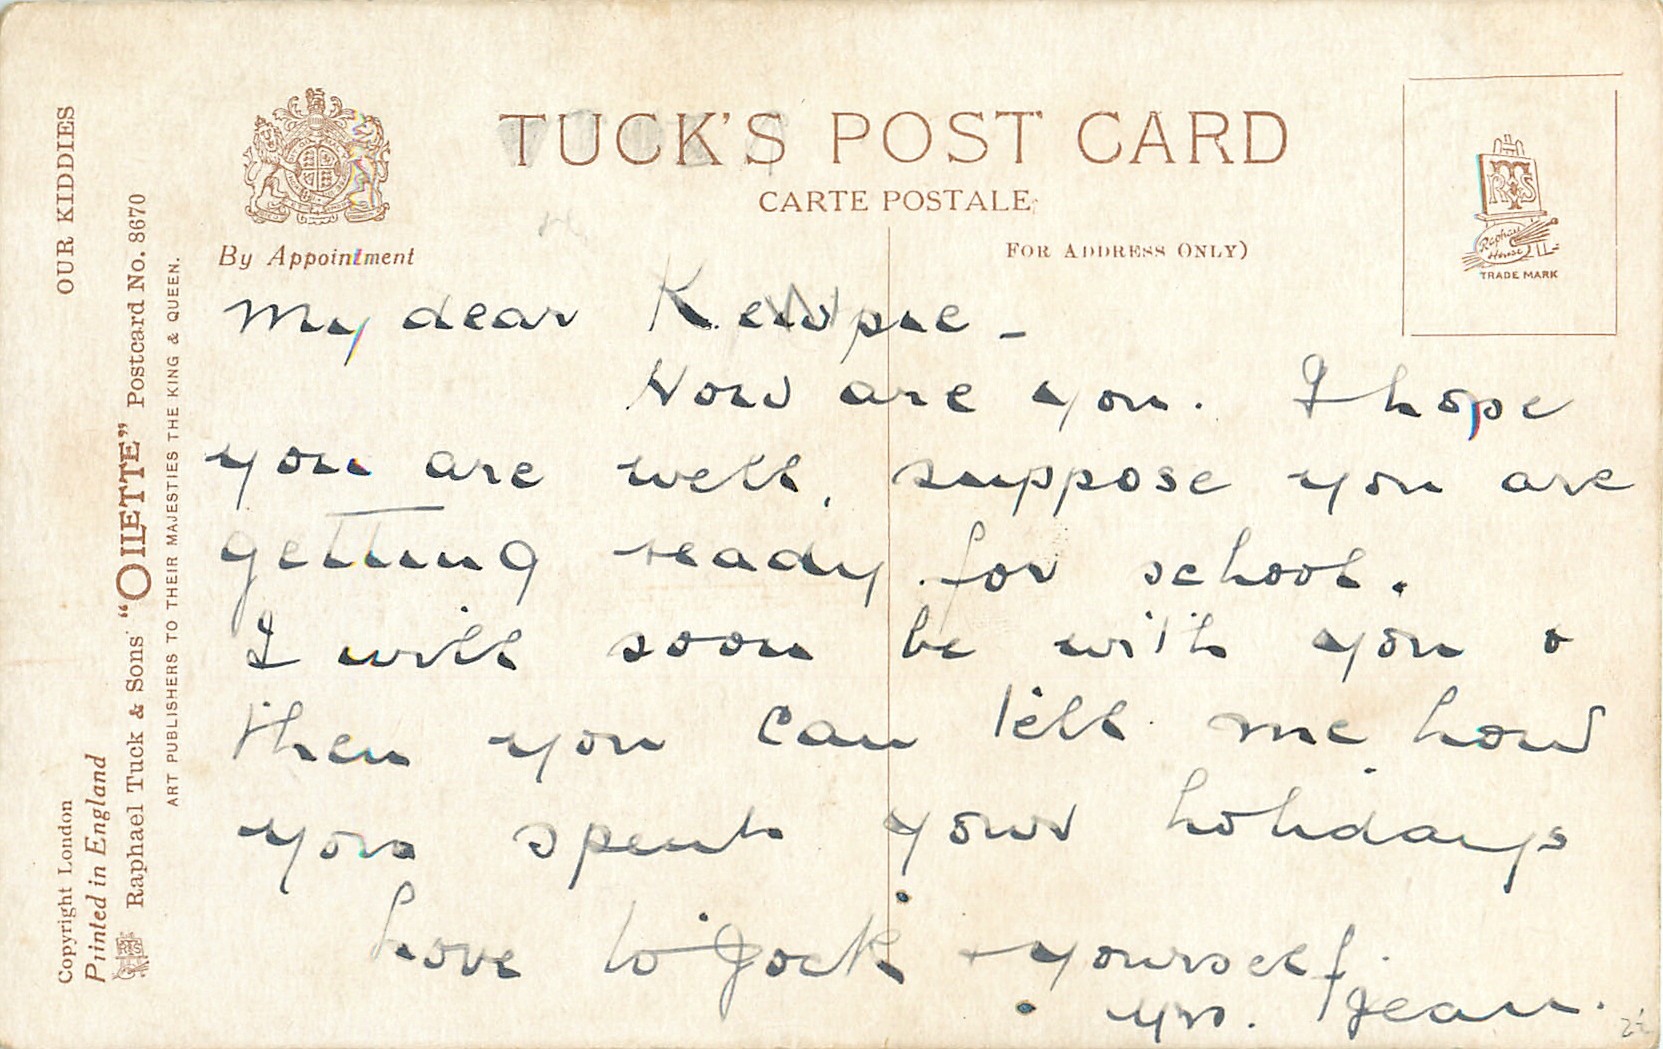 OUR KIDDIES
Copyright London
Printed in England
Raphael Tuck & Sons' "OILETTE" Postcard No. 8670
ART PUBLISHERS TO THEIR MAJESTIES THE KING & QUEEN.
By Appointment
TUCK'S POST CARD
CARTE POSTALE
FOR ADDRESS ONLY)
RTS
Raphael
House
TRADE MARK
My dear Kewpie -
How are you. I hope
you are well, suppose you are
getting ready for school.
I will soon be with you &
then you can tell me how
you spent your holidays
Love to Jock + yourself.
yrs. Jean.